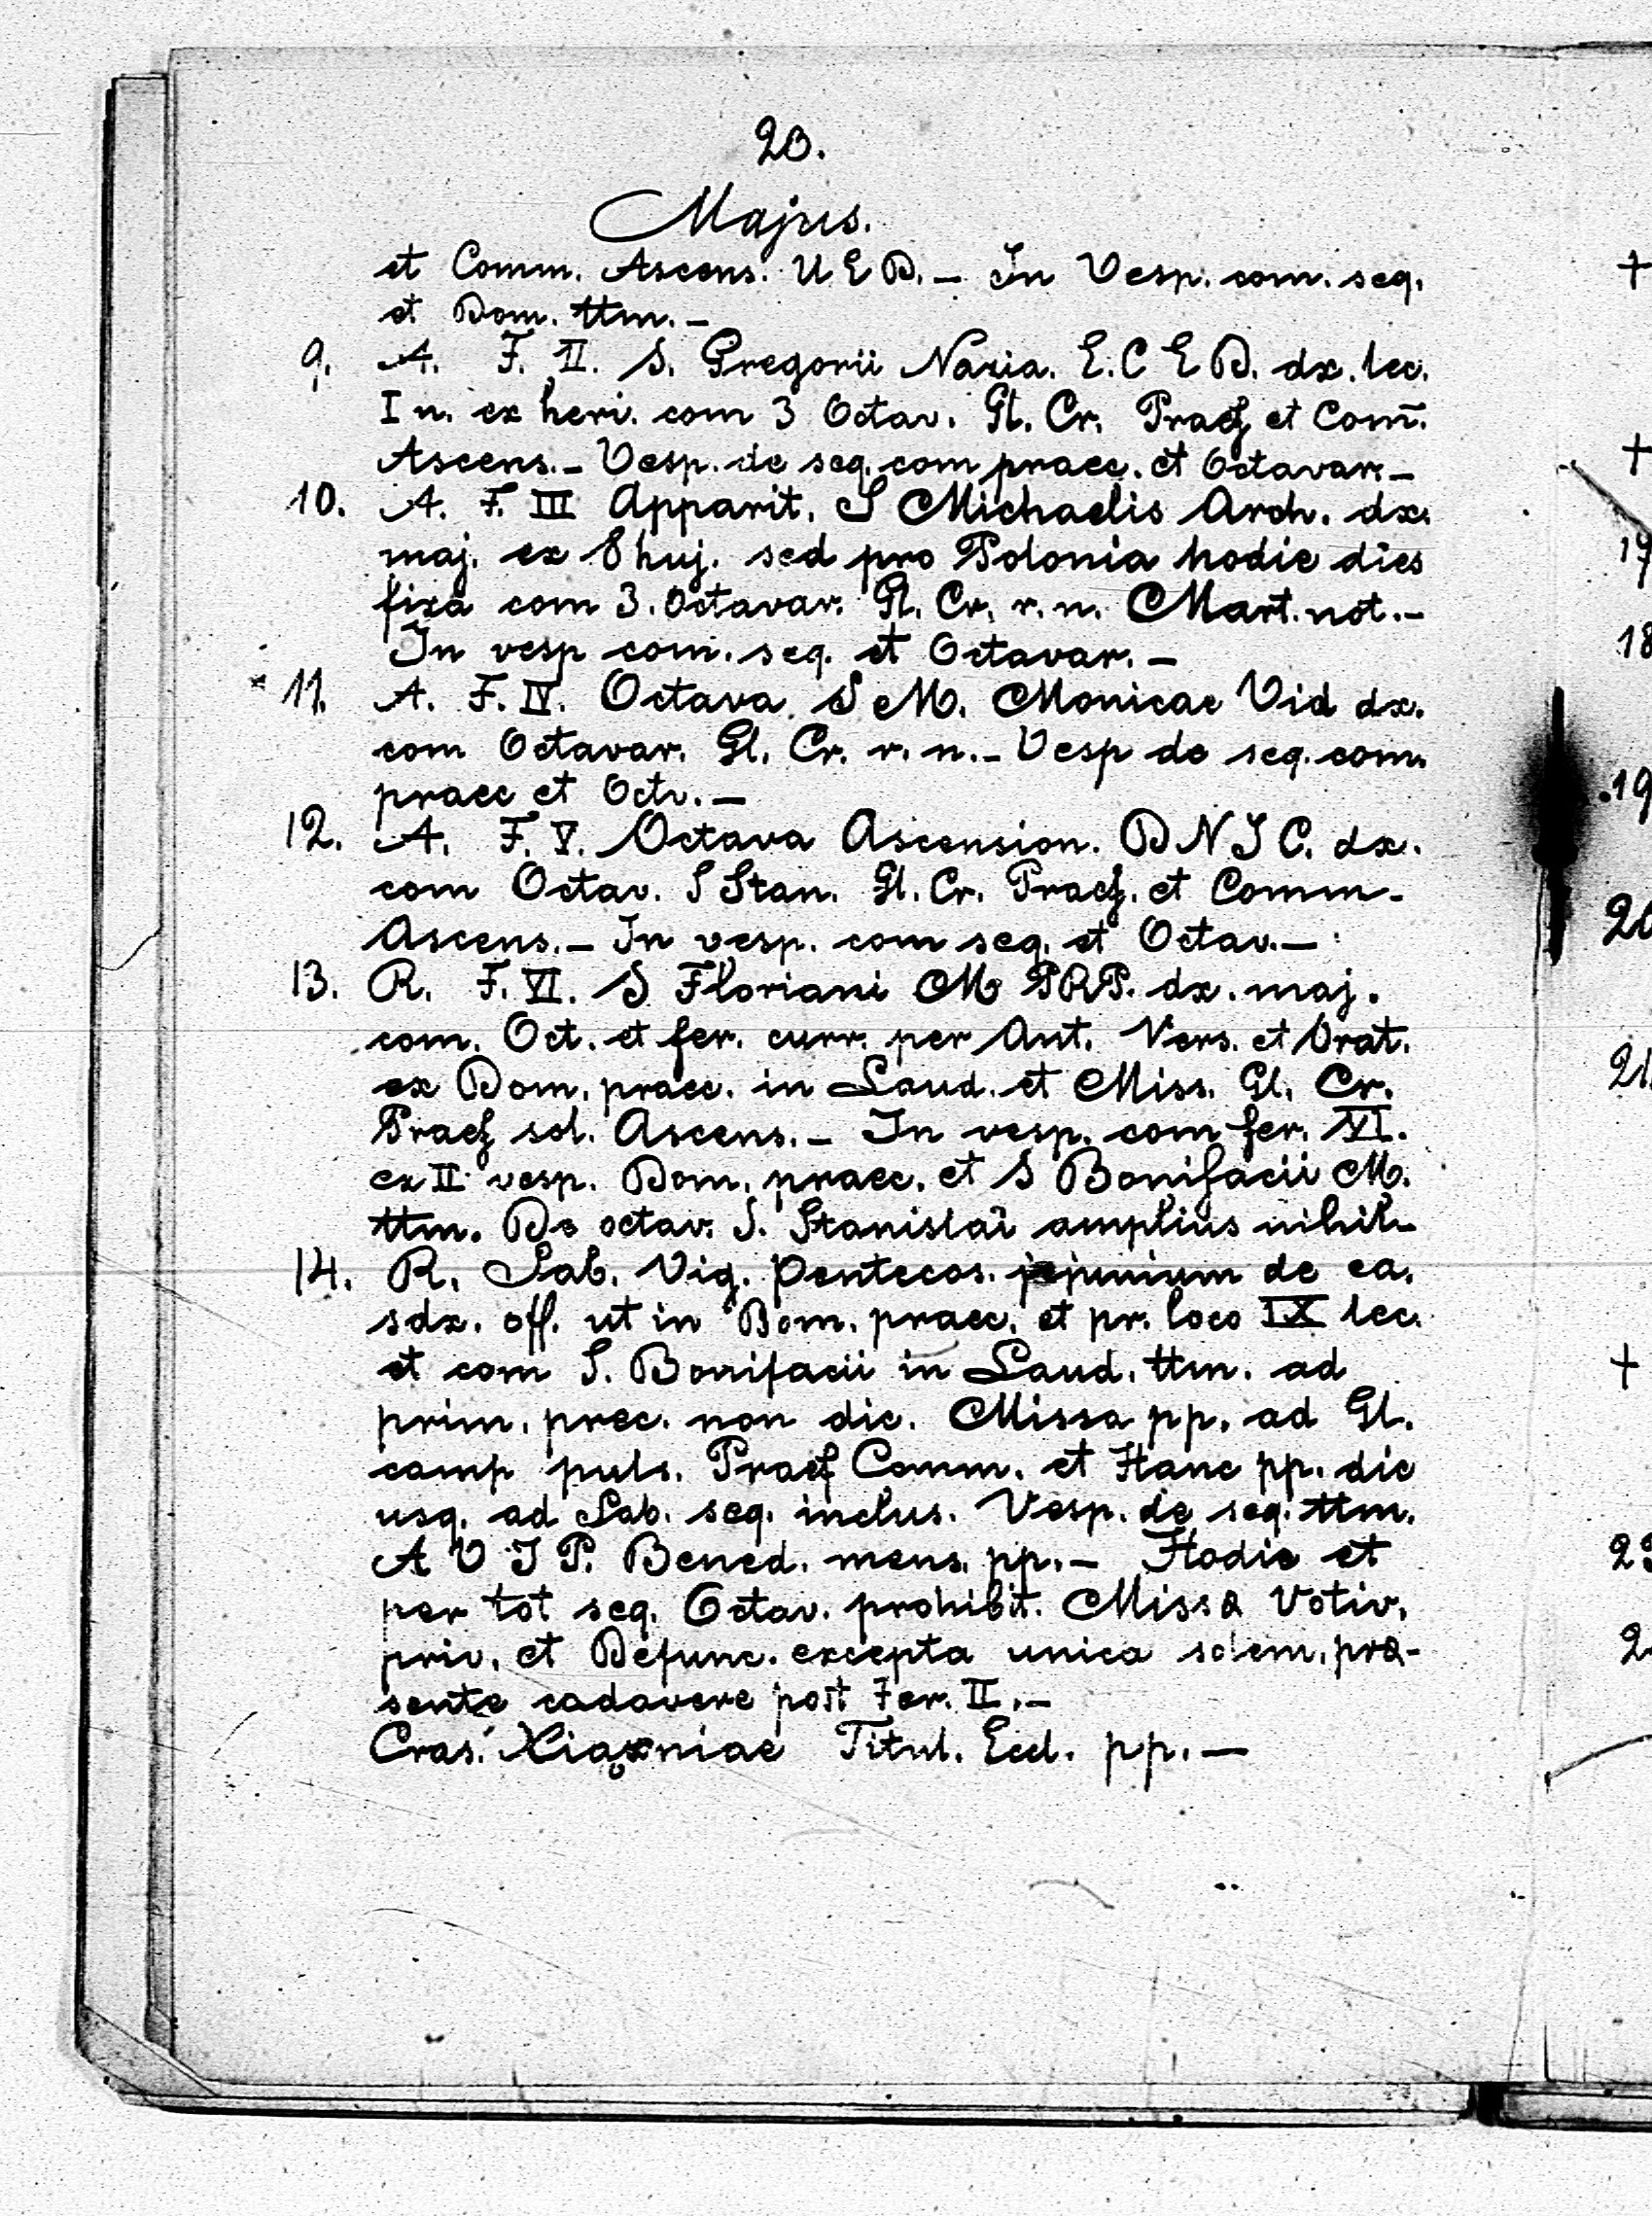 23.
Majus.
et Comm. Ascens. U E D. – In Vesp. com. seq.
et Dom. ttm. –
9. A. F. II. S. Gregorii Nazia. E. C E D. dx. lec.
I n. ex heri. com 3 Octav. Gl. Cr. Praef et Com̄.
Ascens. – Vesp. de seq. com praec. et Octavar. –
10. A. F. III Apparit. S Michaelis Arch. dx.
maj. ex 8 huj. sed pro Polonia hodie dies
fixa com 3. Octavar. Gl. Cr. r. n. Mart. not. –
In vesp com. seq. et Octavar. –
11. A. F. IV. Octava S M. Monicae Vid dx.
com Octavar. Gl. Cr. r. n. – Vesp de seq. com.
praec et Octv. –
12. A. F. V. Octava Ascension. D N J C. dx.
com Octav. S Stan. Gl. Cr. Praef. et Comm.
Ascens. – In vesp. com seq. et Octav. –
13. R. F. VI. S Floriani M PRP. dx. maj.
com. Oct. et fer. curr. per Ant. Vers. et Orat.
ex Dom. praec. in Laud. et Miss. Gl. Cr.
Praef sol. Ascens. – In vesp. com fer. VI.
ex II vesp. Dom. praec. et S Bonifacii M.
ttm. De octav. S. Stanislai amplius nihil. –
14. R. Sab. Vig. Pentecos. jejunium de ea.
sdx. off. ut in Dom. praec. et pr. loco IX lec.
et com S. Bonifacii in Laud. ttm. ad
prim. prec. non dic. Missa pp. ad Gl.
camp puls. Praef Comm. et Hanc pp. dic
usq. ad Sab. seq. inclus. Vesp. de seq. ttm.
A V J P. Bened. mens. pp. – Hodie et
per tot seq. Octav. prohibit. Missa Votiv.
priv. et Defunc. excepta unica solem. pra-
sente cadavere post Fer. II. –
Cras. Titul. Eccl. pp. –